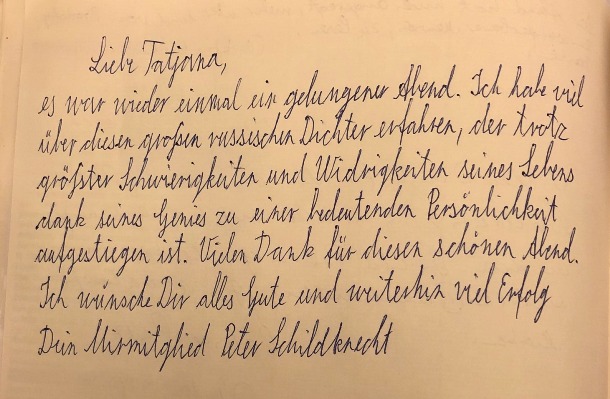 Liebe Tatjana,
es war wieder einmal ein gelungener Abend. Ich habe viel
über diesen großen russischen Dichter erfahren, der trotz
größter Schwierigkeiten und Widrigkeiten seines Lebens
dank seines Genies zu einer bedeutenden Persönlichkeit
aufgestiegen ist. Vielen Dank für diesen schönen Abend.
Ich wünsche Dir alles Gute und weiterhin viel Erfolg
Dein Mirmitglied Peter Schildknecht